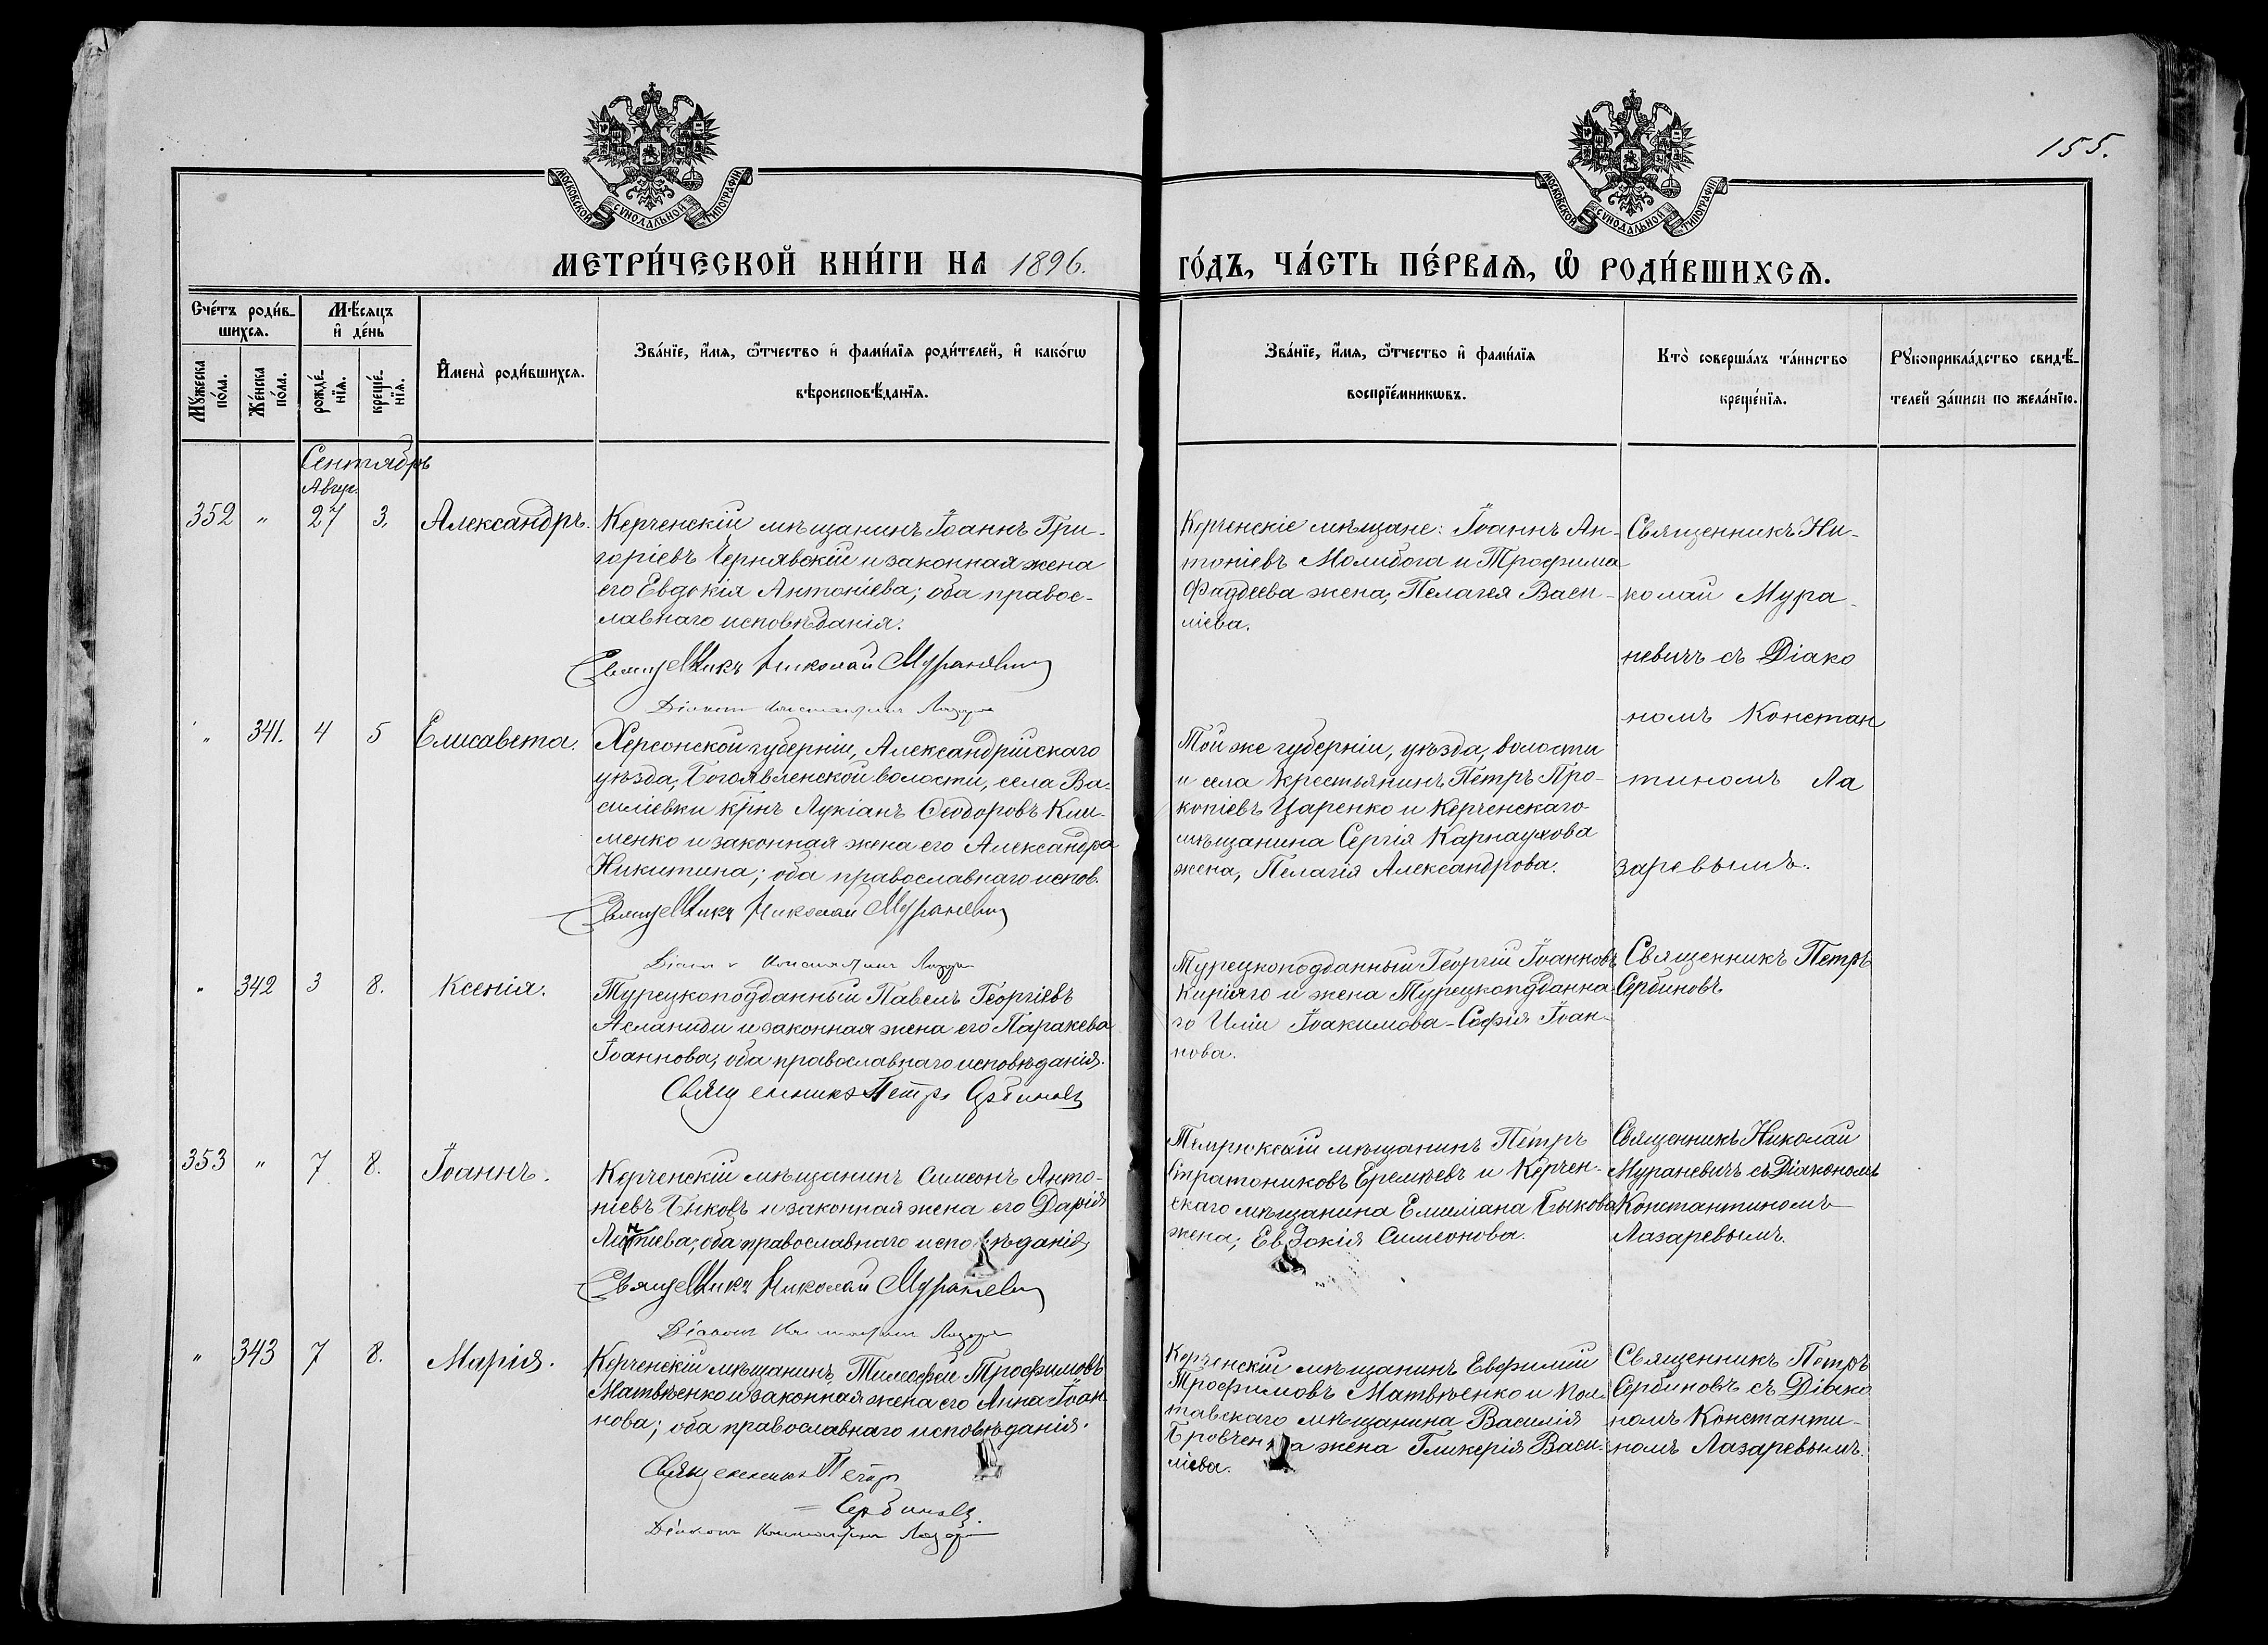 155.
МОСКОВСКОЙ СѴНОДАЛЬНОЙ ТИПОГРАФІИ
МОСКОВСКОЙ СѴНОДАЛЬНОЙ ТИПОГРАФІИ
МЕТРИ́ЧЕСКОЙ КНИ́ГИ НА 1896.
ГО́ДЪ, ЧА́СТЬ ПЕ́РВАѦ, Ѽ РОДИ́ВШИХСѦ.
Сче́тъ роди́в-
шихсѧ.
Мꙋ́жеска
по́ла.
Же́нска
по́ла.
Мѣ́сѧцъ
и҆ де́нь
рожде́-
нїѧ.
креще́-
нїѧ.
И҆мена̀ роди́вшихсѧ.
Зва́нїе, и҆́мѧ, ѻ҆́тчество и҆ фами́лїѧ роди́телей, и҆ како́гѡ
вѣроисповѣ́данїѧ.
Зва́нїе, и҆́мѧ, ѻ҆́тчество и҆ фами́лїѧ
воспрїе́мникѡвъ.
Кто̀ соверша́лъ та́инство
креще́нїѧ.
Рꙋкоприкла́дство свидѣ́-
телей за́писи по жела́нїю.
Сентябрь
Авгус.
352 " 27 3. Александръ.
Керченскій мѣщанинъ Іоаннъ Гри-
горіевъ Чернявскій и законная жена
его Евдокія Антоніева; оба правос-
лавнаго исповѣданія.
Священникъ Николай Мураневич
Діаконъ Константинъ Лазарев
Керченскіе мѣщане: Іоаннъ Ан-
тоніевъ Молибога и Трофима
Фаддеева жена, Пелагея Васи-
ліева.
Священникъ Ни-
колай Мура-
невичъ съ Діако
номъ Констан
тиномъ Ла
заревымъ.
" 341. 4 5 Елисавета.
Херсонской губерніи, Александрійскаго
уѣзда, Богоявленской волости, села Ва-
силіевки кр-нъ Лукіанъ Ѳеодоровъ Кли-
менко и законная жена его Александра
Никитина; оба православнаго испов.
Священникъ Николай Мураневич
Діаконъ Константинъ Лазарев
Той же губерніи, уѣзда, волости
и села крестьянинъ Петръ Про-
копіевъ Царенко и Керченскаго
мѣщанина Сергія Карнаухова
жена, Пелагія Александрова.
" 342 3 8. Ксенія.
Турецкоподданный Павелъ Георгіевъ
Асланиди и законная жена его Паракева
Іоаннова, оба православнаго исповѣданія.
Священникъ Петръ Сербиновъ
Турецкоподданный Георгій Іоанновъ
Киріяго и жена Турецкоподданна-
го Иліи Іоакимова-Софія Іоан-
нова.
Священникъ Петръ
Сербиновъ
353 " 7 8. Іоаннъ.
Керченскій мѣщанинъ Симеонъ Анто-
ніевъ Быковъ и законная жена его Дарія
оба православнаго исповѣданія
Священникъ Николай Мураневич
Діаконъ Константинъ Лазарев
Темрюкскій мѣщанинъ Петръ
Стратониковъ Еремѣевъ и Керчен-
скаго мѣщанина Емиліана Быкова
жена; Евдокія Симеонова.
Священникъ Николай
Мураневичъ съ Діакономъ
Константиномъ
Лазаревымъ.
" 343 7 8. Марія.
Керченскій мѣщанинъ Тимофей Трофимовъ
Матвѣенко и законная жена его Анна Іоан-
нова; оба православнаго исповѣданія.
Священникъ Петръ
Сербиновъ.
Діаконъ Константинъ Лазарев
Керченскій мѣщанинъ Евфимій
Трофимовъ Матвѣенко и Пол-
тавскаго мѣщанина Василія
Бровченка жена Гликерія Васи-
ліева.
Священникъ Петръ
Сербиновъ съ Діако
номъ Константи-
номъ Лазаревымъ.